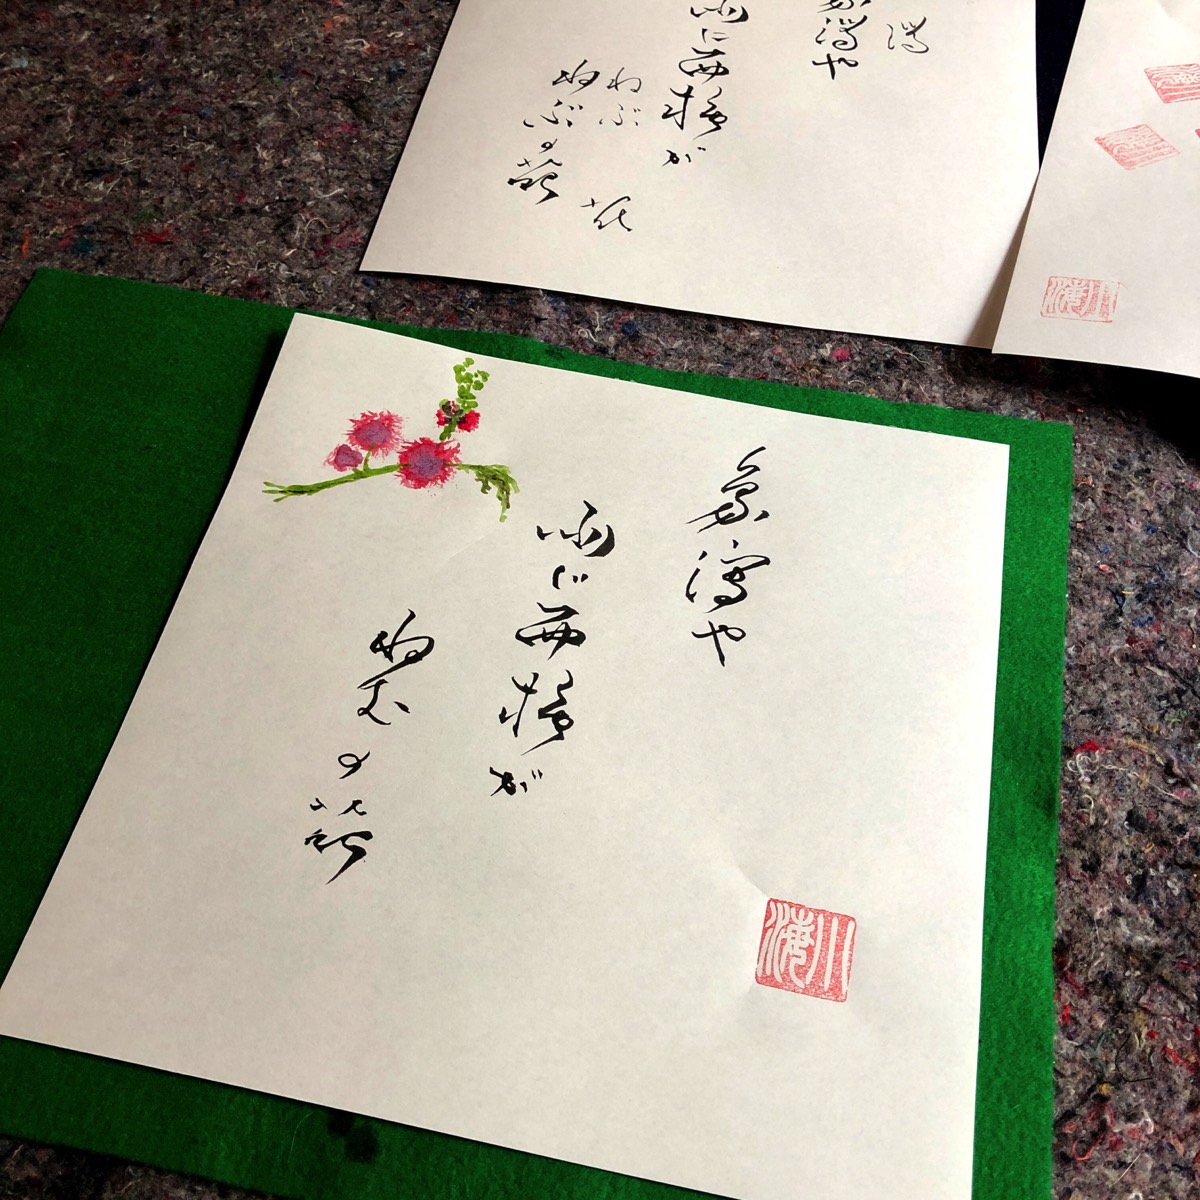 潟
象潟や
雨に西施が
ねぶ
花
ねぶの花
川海
象潟や
雨に西施が
ねむの花
川海